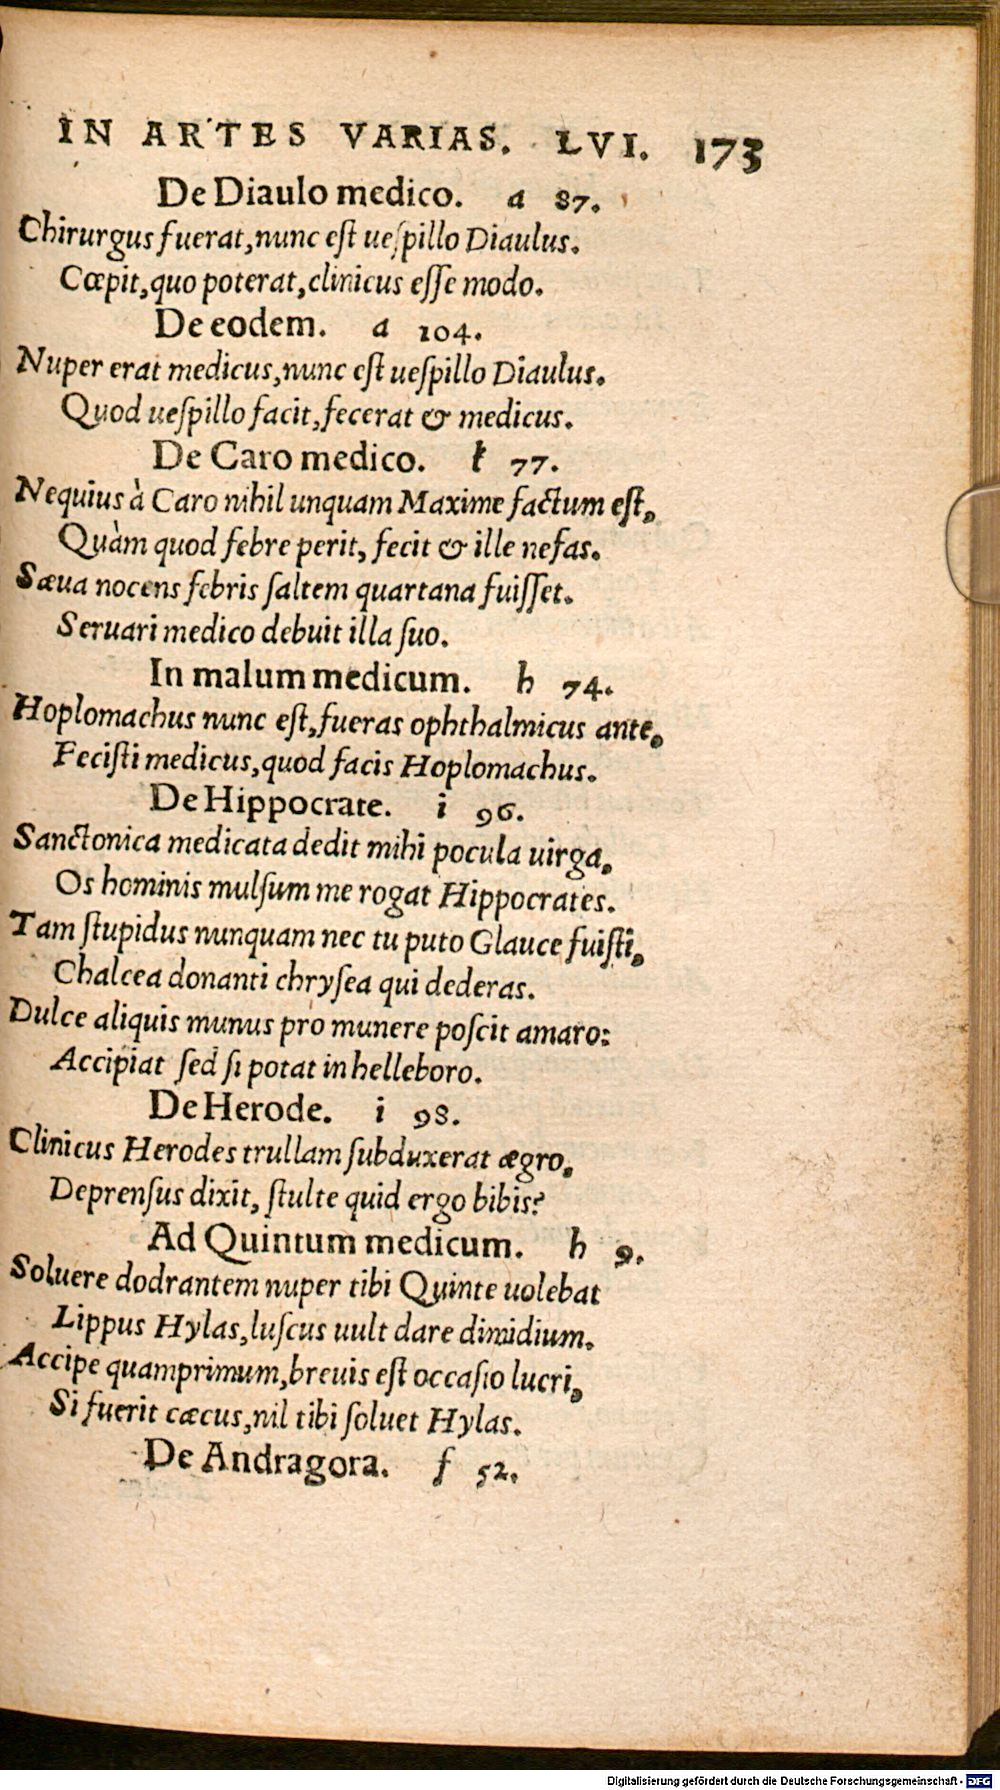 IN ARTES VARIAS. LVI. 173
De Diaulo medico. a 87.
Chirurgus fuerat, nunc eſt ueſpillo Diaulus.
Cœpit, quo poterat, clinicus eſſe modo.
De eodem. a 104.
Nuper erat medicus, nunc eſt ueſpillo Diaulus.
Quod ueſpillo facit, fecerat & medicus.
De Caro medico. k 77.
Nequius à Caro nihil unquam Maxime factum eſt,
Quàm quod febre perit, fecit & ille nefas.
Sæua nocens febris ſaltem quartana fuiſſet.
Seruari medico debuit illa ſuo.
In malum medicum. h 74.
Hoplomachus nunc eſt, fueras ophthalmicus ante,
Feciſti medicus, quod facis Hoplomachus.
De Hippocrate. i 96.
Sanctonica medicata dedit mihi pocula uirga,
Os hominis mulſum me rogat Hippocrates.
Tam ſtupidus nunquam nec tu puto Glauce fuiſti,
Chalcea donanti chryſea qui dederas.
Dulce aliquis munus pro munere poſcit amaro:
Accipiat ſed ſi potat in helleboro.
De Herode. i 98.
Clinicus Herodes trullam ſubduxerat ægro,
Deprenſus dixit, ſtulte quid ergo bibis?
Ad Quintum medicum. h 9.
Soluere dodrantem nuper tibi Quinte uolebat
Lippus Hylas, luſcus uult dare dimidium.
Accipe quamprimum, breuis eſt occaſio lucri,
Si fuerit cæcus, nil tibi ſoluet Hylas.
De Andragora. f 52.
Digitalisierung gefördert durch die Deutsche Forschungsgemeinschaft - DFG